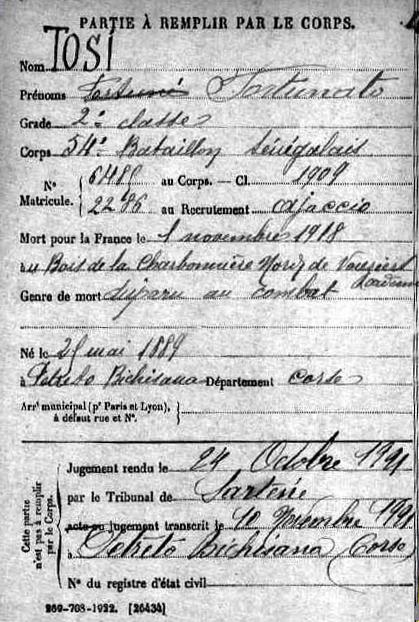 PARTIE À REMPLIR PAR LE CORPS.
Nom TOSI
Prénoms Fortuné Fortunato
Grade 2e classe
Corps 54e Bataillon Sénégalais
N° Matricule. { 6488 au Corps. — Cl. 1909
2286 au Recrutement Ajaccio
Mort pour la France le 1 novembre 1918
à au Bois de la Charbonnière Nord de Vouziers
Genre de mort disparu au combat Ardennes
Né le mai 1889
à Petreto Bichisana Département Corse
Arrt municipal (pr Paris et Lyon),
à défaut rue et N°.
Cette partie n'est pas à remplir par le Corps.
Jugement rendu le 24 Octobre
par le Tribunal de Sartène
acte ou jugement transcrit le 10 Novembre
à Petreto Bichisana (Corse)
N° du registre d'état civil
269-708-1922. [26434]